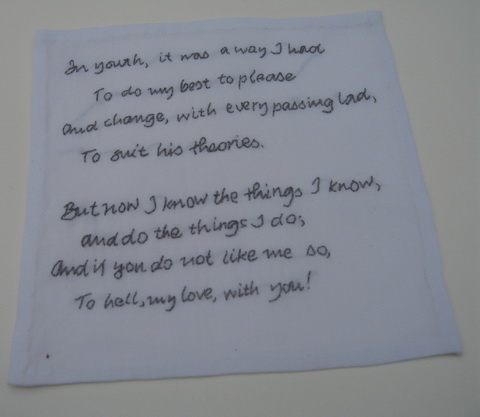 In youth, it was a way I had
To do my best to please
And change, with every passing lad,
To suit his theories.
But now I know the things I know,
and do the things I do;
And if you do not like me so,
To hell, my love, with you!